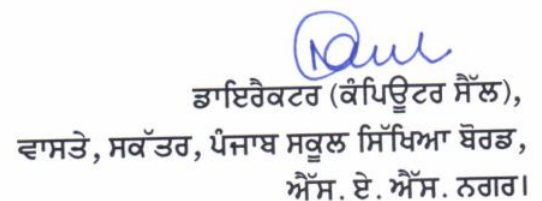 ਡਾਇਰੈਕਟਰ (ਕੰਪਿਊਟਰ ਸੈੱਲ),
ਵਾਸਤੇ, ਸਕੱਤਰ, ਪੰਜਾਬ ਸਕੂਲ ਸਿੱਖਿਆ ਬੋਰਡ,
ਐੱਸ. ਏ. ਐੱਸ. ਨਗਰ।